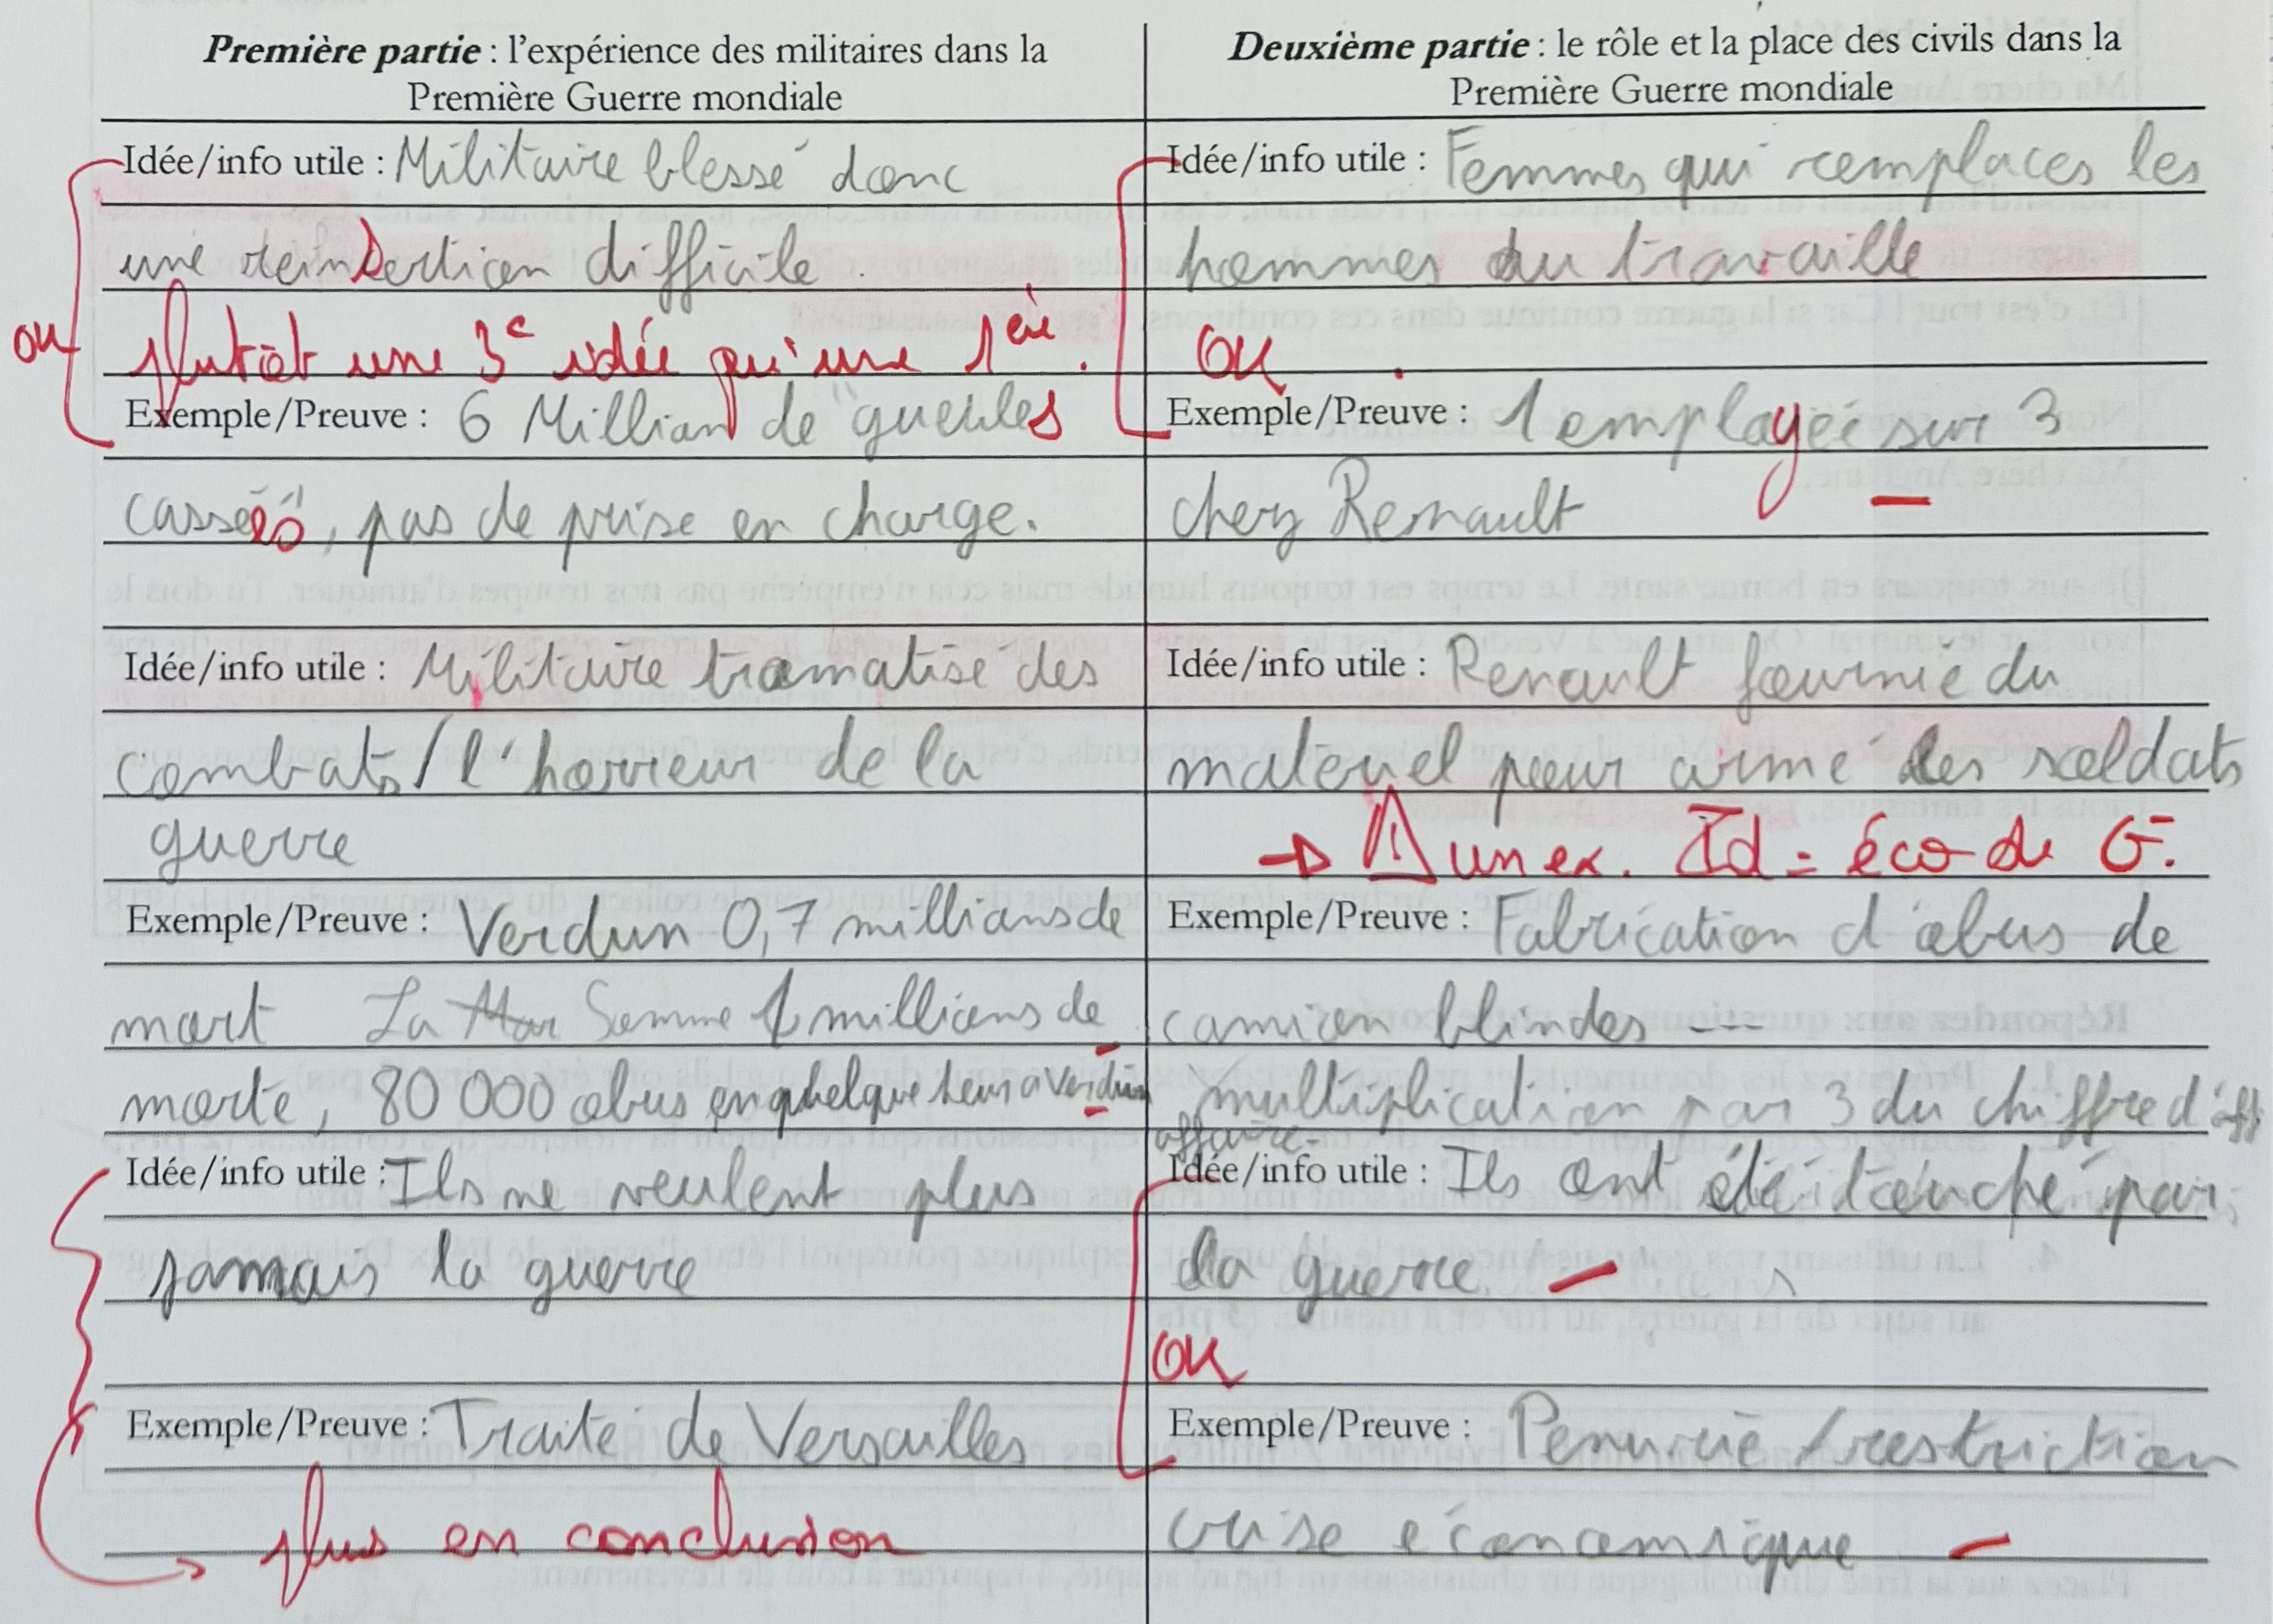 Première partie : l'expérience des militaires dans la
Première Guerre mondiale
Idée/info utile : Militaire blessé donc
une réinsertion difficile.
ou plutôt une 3e idée qu'une 1ère.
Exemple/Preuve : 6 Million de "gueules
cassées", pas de prise en charge.
Idée/info utile : Militaire tramatisé des
combats / l'horrieur de la
guerre
Exemple/Preuve : Verdun 0,7 millions de
mort La Mar Somme 1 millions de
morte, 80 000 obus en quelque heur a Verdun
Idée/info utile : Ils ne veulent plus
jamais la guerre
Exemple/Preuve : Traité de Versailles
plus en conclusion
Deuxième partie : le rôle et la place des civils dans la
Première Guerre mondiale
Idée/info utile : Femmes qui remplaces les
hommes au travaille
ou
Exemple/Preuve : 1 employée sur 3
chez Renault
Idée/info utile : Renault fournie du
materiel pour armé les soldats
→ ⚠ un ex. Id = éco de G.
Exemple/Preuve : Fabrication d'obus de
camion blindes ---
multiplication par 3 du chiffre d'aff
affaire.
Idée/info utile : Ils ont été touché par
la guerre
ou
Exemple/Preuve : Penurie / restriction
crise économique